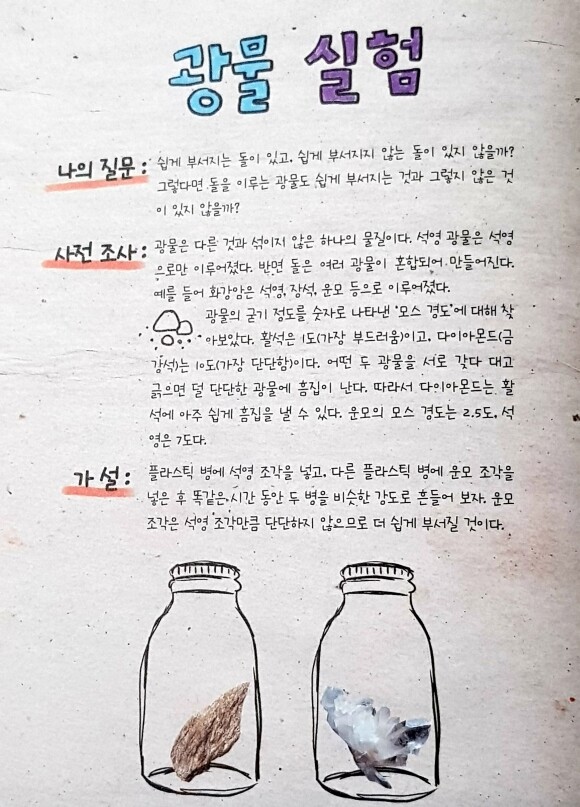 광물 실험
나의 질문 : 쉽게 부서지는 돌이 있고, 쉽게 부서지지 않는 돌이 있지 않을까?
그렇다면 돌을 이루는 광물도 쉽게 부서지는 것과 그렇지 않은 것
이 있지 않을까?
사전 조사 : 광물은 다른 것과 섞이지 않은 하나의 물질이다. 석영 광물은 석영
으로만 이루어졌다. 반면 돌은 여러 광물이 혼합되어 만들어진다.
예를 들어 화강암은 석영, 장석, 운모 등으로 이루어졌다.
광물의 굳기 정도를 숫자로 나타낸 '모스 경도'에 대해 찾
아보았다. 활석은 1도(가장 부드러움)이고, 다이아몬드(금
강석)는 10도(가장 단단함)이다. 어떤 두 광물을 서로 갖다 대고
긁으면 덜 단단한 광물에 흠집이 난다. 따라서 다이아몬드는 활
석에 아주 쉽게 흠집을 낼 수 있다. 운모의 모스 경도는 2.5도, 석
영은 7도다.
가 설 : 플라스틱 병에 석영 조각을 넣고, 다른 플라스틱 병에 운모 조각을
넣은 후 똑같은 시간 동안 두 병을 비슷한 강도로 흔들어 보자. 운모
조각은 석영 조각만큼 단단하지 않으므로 더 쉽게 부서질 것이다.